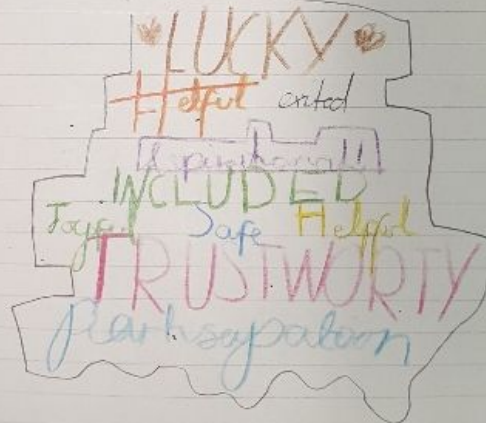 LUCKY
Helful exited
INCLUDED
Joyful Safe Helpful
TRUSTWORTY